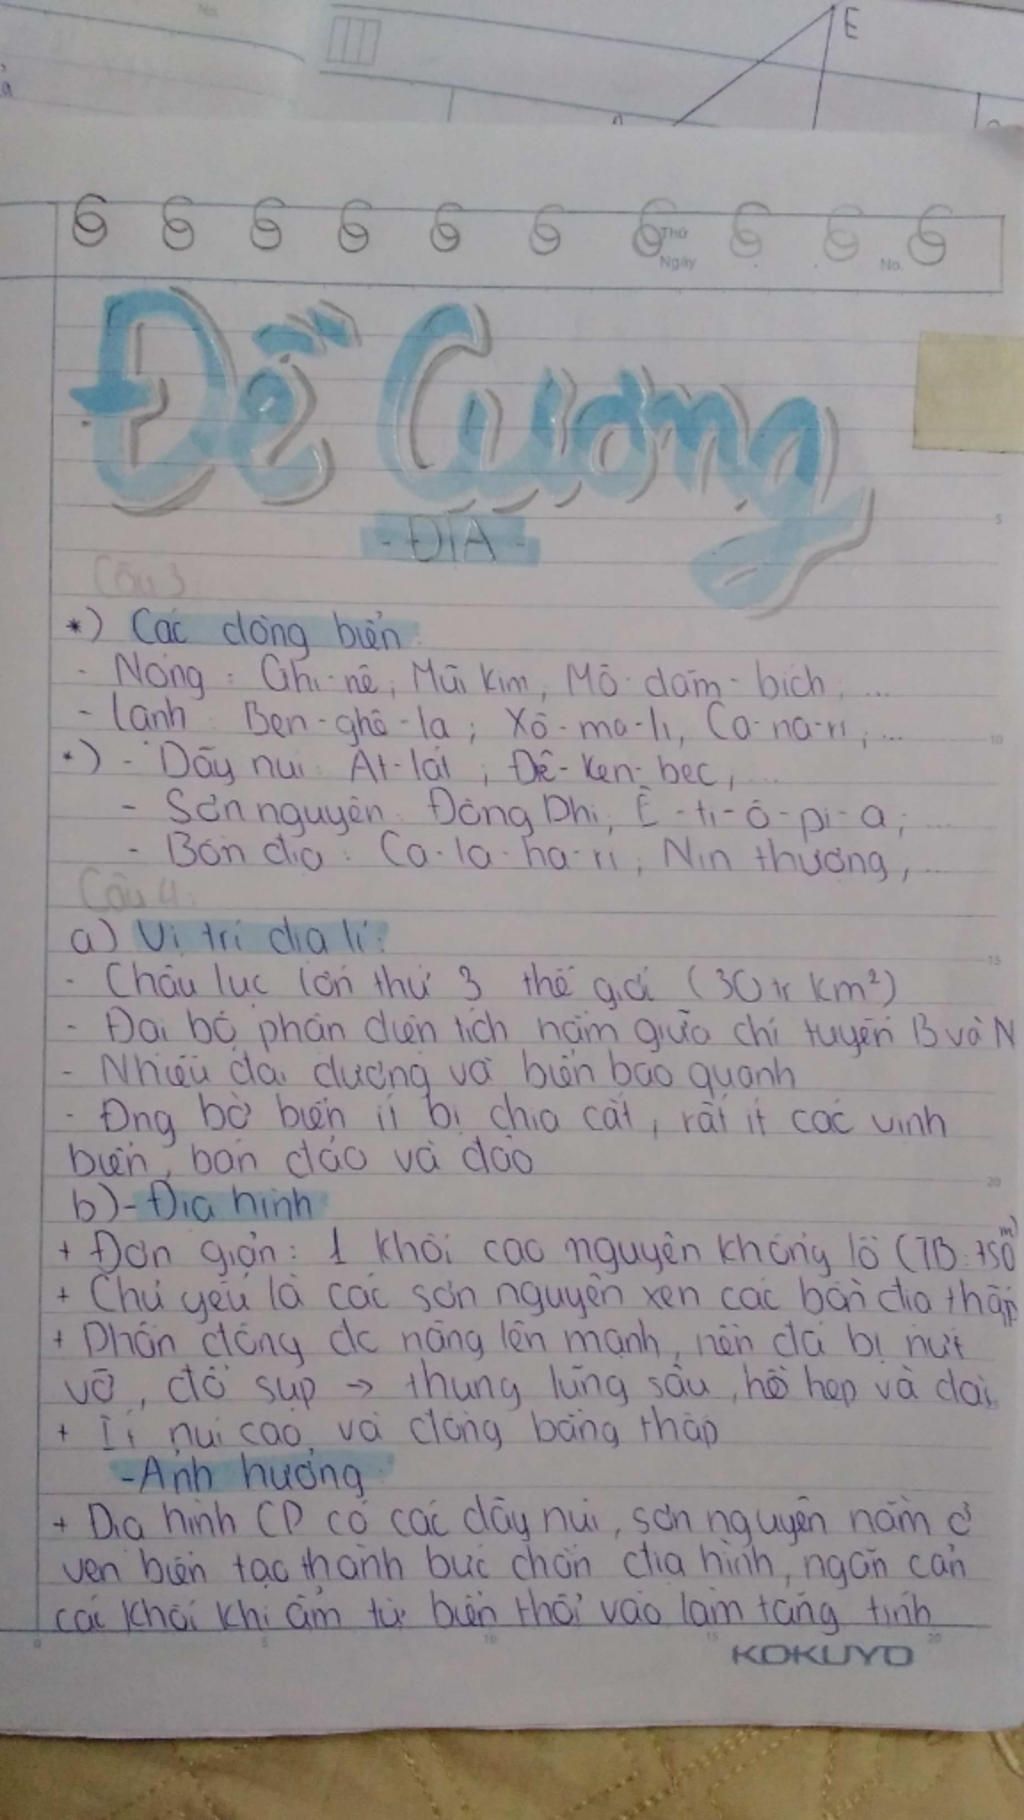 E
Thứ
Ngày
No.
Đề Cương
- ĐỊA -
Câu 3:
*) Các dòng biển:
- Nóng: Ghi-nê, Mũi Kim, Mô-dăm-bích, ...
- Lạnh: Ben-ghê-la; Xô-ma-li, Ca-na-ri, ...
*) - Dãy núi: At-lát, Đê-ken-bec, ...
- Sơn nguyên: Đông Phi, Ê-ti-ô-pi-a; ...
- Bồn địa: Ca-la-ha-ri, Nin thượng, ...
Câu 4:
a) Vị trí địa lí:
- Châu lục lớn thứ 3 thế giới (30 tr km²)
- Đại bộ phận diện tích nằm giữa chí tuyến B và N
- Nhiều đại dương và biển bao quanh
- Đng bờ biển ít bị chia cắt, rất ít các vịnh
biển, bán đảo và đảo
b) - Địa hình
+ Đơn giản: 1 khối cao nguyên khổng lồ (TB: 750m)
+ Chủ yếu là các sơn nguyên xen các bồn địa thấp
+ Phần đông đc nâng lên mạnh, nền đá bị nứt
vỡ, đổ sụp → thung lũng sâu, hồ hẹp và dài
+ Ít núi cao và đồng bằng thấp
- Ảnh hưởng
+ Địa hình CP có các dãy núi, sơn nguyên nằm ở
ven biển tạo thành bức chắn địa hình, ngăn cản
các khối khí ẩm từ biển thổi vào làm tăng tính
KOKUYO